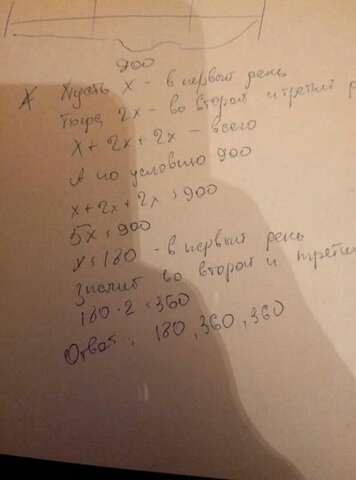 900
Пусть x - в первый день
Тогда 2x - во второй и третий
x + 2x + 2x - всего
А по условию 900
x + 2x + 2x = 900
5x = 900
x = 180 - в первый день
Значит во второй и третий
180 · 2 = 360
Ответ: 180, 360, 360